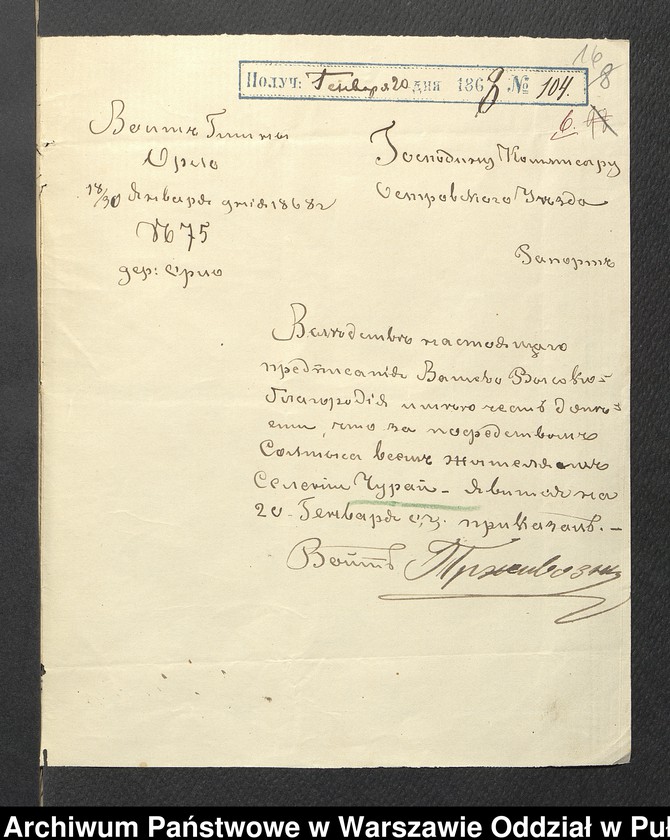 Получ: Генваря 20 дня 1868 № 104.
16
8
6.
Войтъ Гмины
Орло
18/30 Января дня 1868 г
№ 75
дер: Орло
Господину Коммисару
Островского Уезда
Рапортъ
Вследствие настоящаго
предписанія Вашего Высоко=
благородія имею честь донес=
ени, что за посредствомъ
Солтыса всемъ жителямъ
Селенія Чурай – явится на
20 Генваря с/г. приказалъ. –
Войтъ
Archiwum Państwowe w Warszawie Oddział w Pu